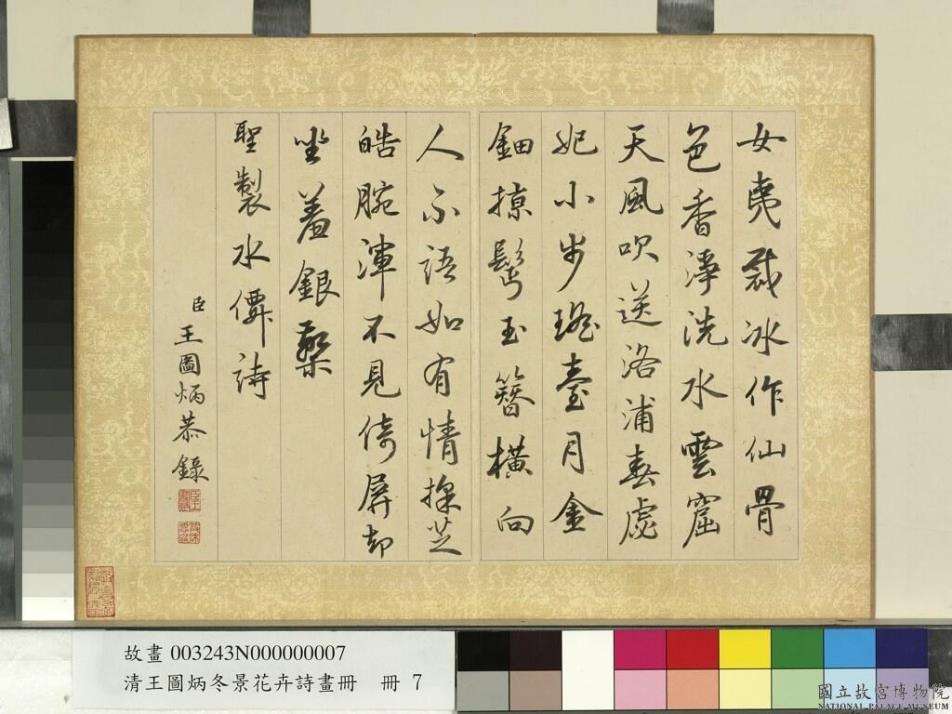 女夷裁冰作仙骨
色香淨洗水雲窟
天風吹送洛浦春虙
妃小步瑤臺月金
鈿掠鬢玉簪橫向
人不語如有情採芝
皓腕渾不見倚屏却
坐羞銀檠
聖製水僊詩
臣王圖炳恭錄
故畫 003243N000000007
清王圖炳冬景花卉詩畫冊 冊 7
國立故宮博物院
NATIONAL PALACE MUSEUM